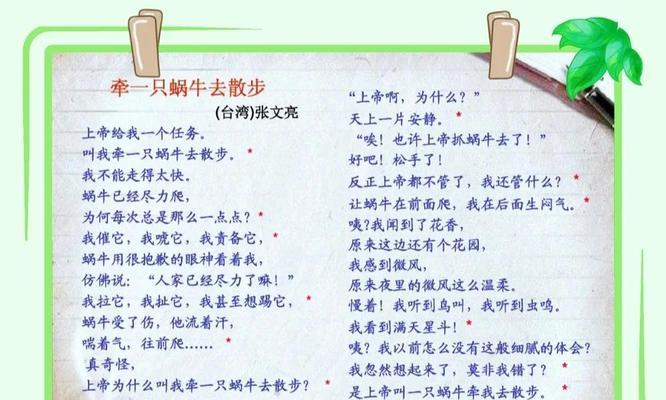 牵一只蜗牛去散步
(台湾)张文亮
上帝给我一个任务。
叫我牵一只蜗牛去散步。*
我不能走得太快。
蜗牛已经尽力爬，
为何每次总是那么一点点？*
我催它，我唬它，我责备它，*
蜗牛用很抱歉的眼神看着我，
仿佛说：“人家已经尽力了嘛！”
我拉它，我扯它，我甚至想踢它，*
蜗牛受了伤，他流着汗，
喘着气，往前爬……*
真奇怪，
上帝为什么叫我牵一只蜗牛去散步？*
“上帝啊，为什么？”
天上一片安静。*
“唉！也许上帝抓蜗牛去了！”
好吧！松手了！
反正上帝都不管了，我还管什么？*
让蜗牛在前面爬，我在后面生闷气。*
咦?我闻到了花香，
原来这边还有个花园，
我感到微风，
原来夜里的微风这么温柔。
慢着！我听到鸟叫，我听到虫鸣。
我看到满天星斗！*
咦？我以前怎么没有这般细腻的体会？*
我忽然想起来了，莫非我错了？*
是上帝叫一只蜗牛牵我去散步。*